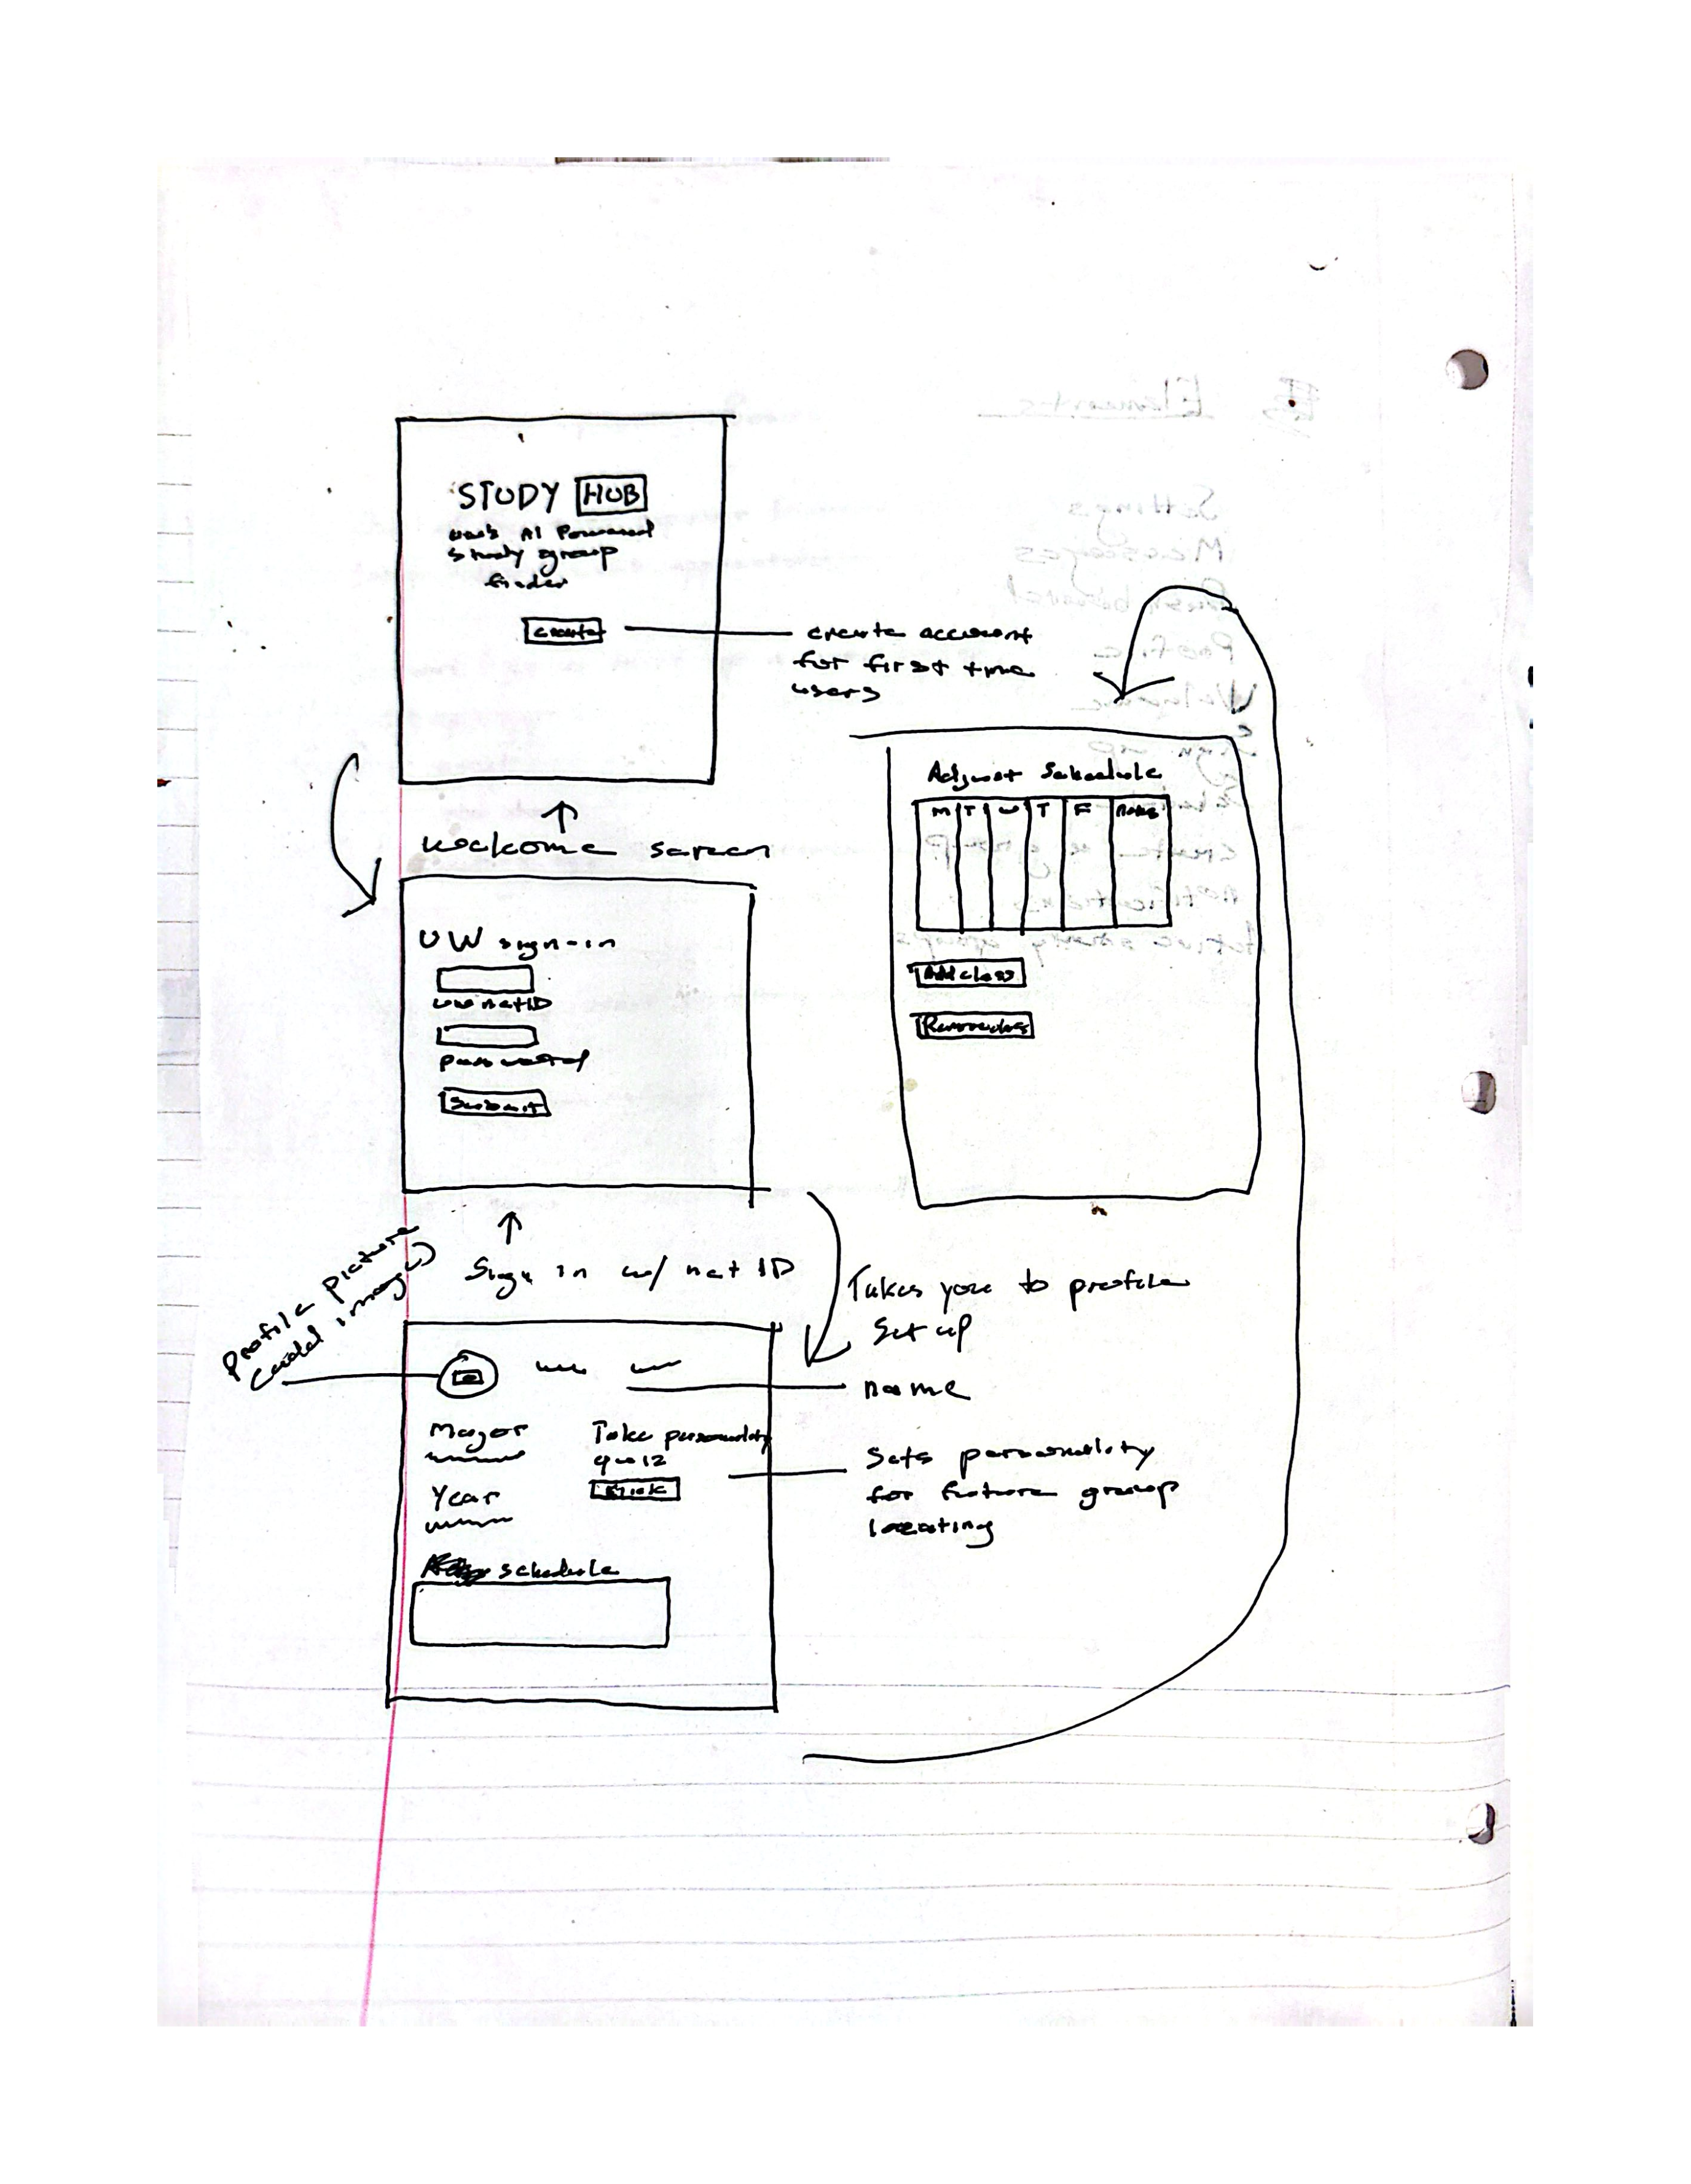 STUDY HUB
AI Powered
study group
finder
create
create account
for first time
users
welcome screen
UW sign-in
uw netID
password
Submit
Sign in w/ net ID
Takes you to profile
Set up
Profile picture
(add image)
name
Major
Take personality
quiz
Year
Sets personality
for future group
locating
schedule
Adjust Schedule
M T W T F
Add class
Remove